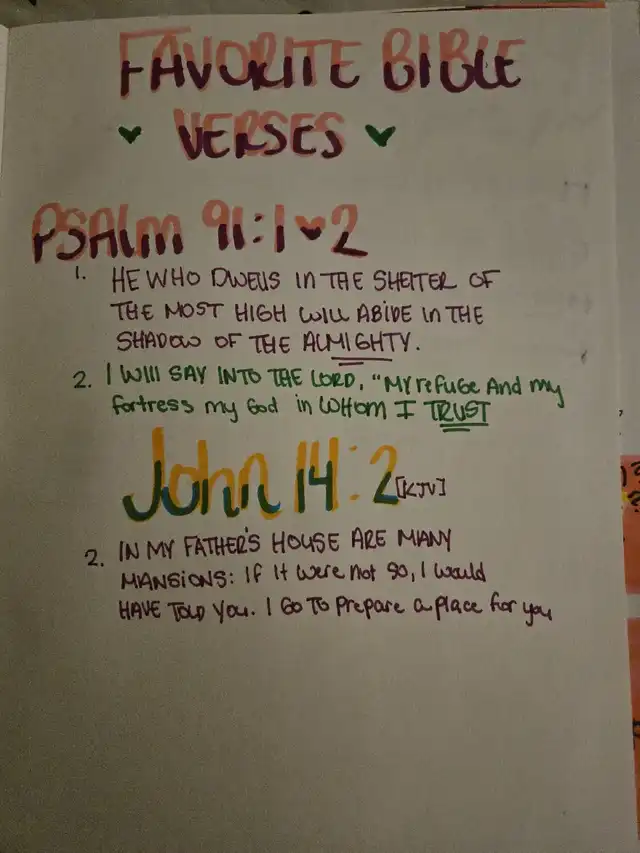 FAVORITE BIBLE
♥ VERSES ♥
PSAlm 91:1♥2
1. HE WHO DWELLS IN THE SHELTER OF
THE MOST HIGH WILL ABIDE IN THE
SHADOW OF THE ALMIGHTY.
2. I WIll SAY INTO THE LORD, "MY refuge And my
fortress my God in WHOM I TRUST
John 14:2 [KJV]
2. IN MY FATHER'S HOUSE ARE MANY
MANSIONS: If It were not so, I would
HAVE TOLD YOU. I GO TO Prepare a place for you